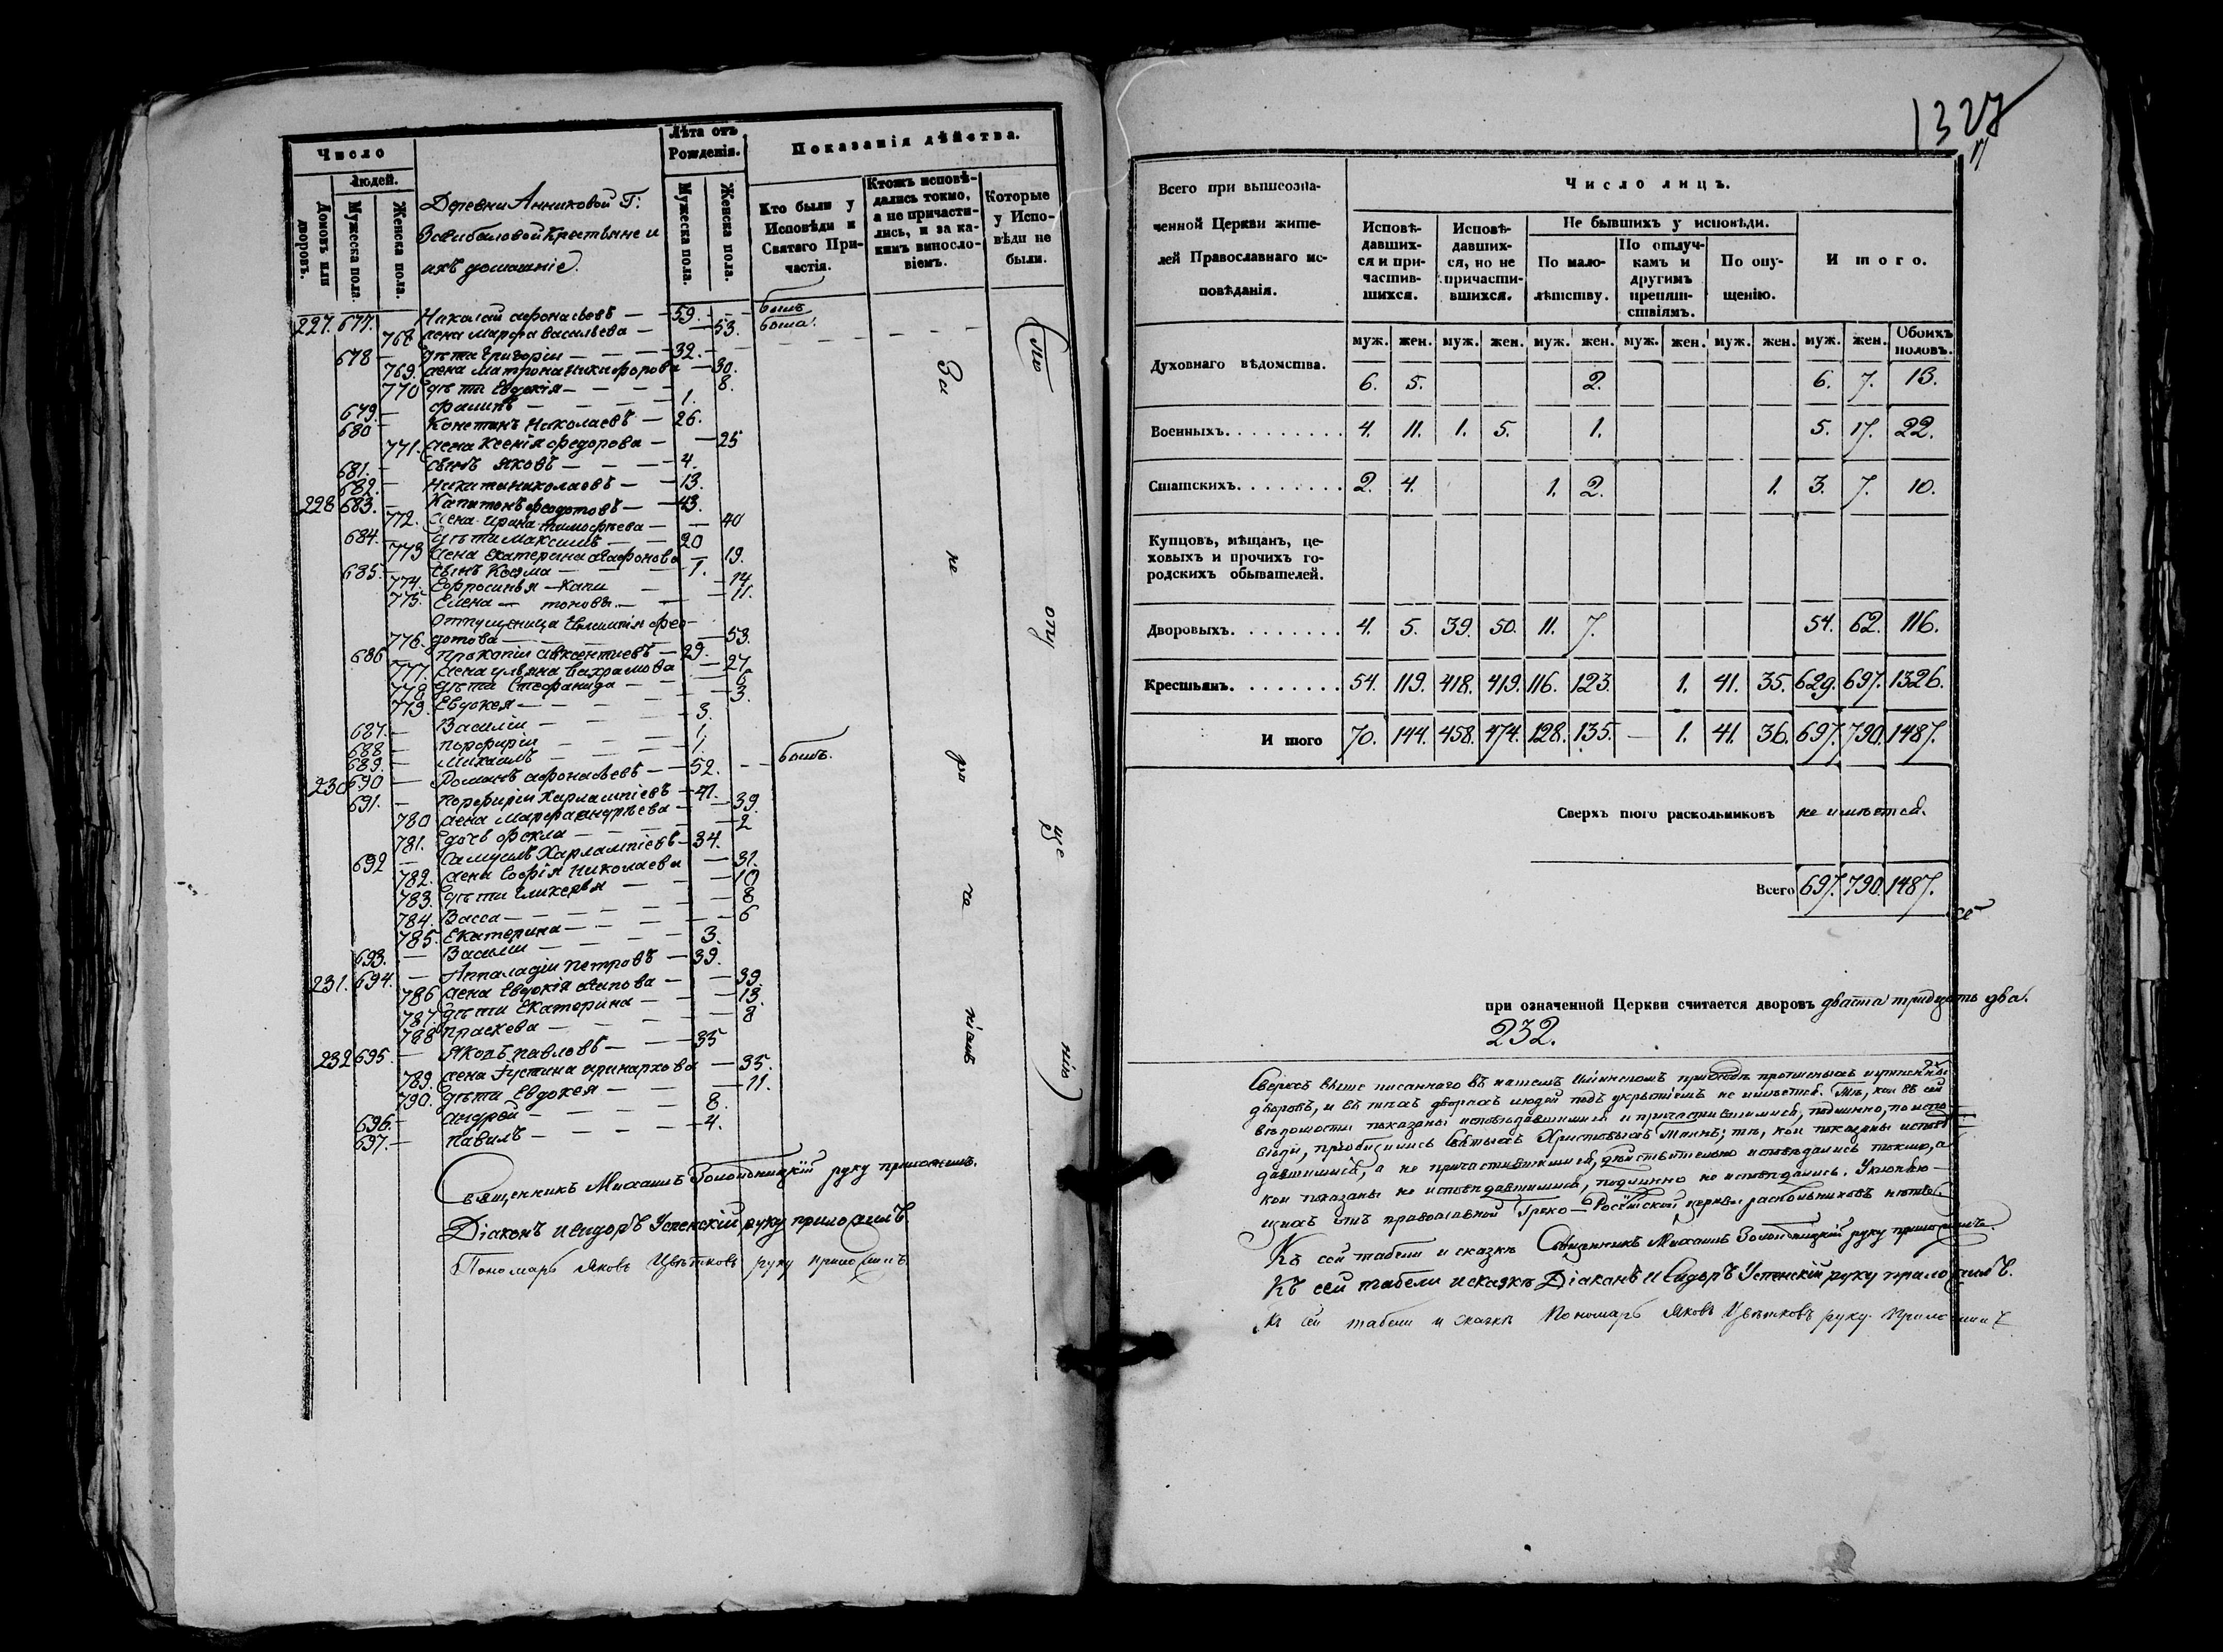 Число
Людей.
Домовъ или дворовъ.
Мужеска пола.
Женска пола.
Деревни Анниковой Г:
крестьяне и
ихъ домашніе.
Лѣта отъ Рожденія.
Мужеска пола.
Женска пола.
Показанія дѣйства.
Кто были у Исповѣди и Святаго Причастія.
Ктожъ исповѣдались токмо, а не причастились, и за какимъ винословіемъ.
Которые у Исповѣди не были.
227. 677. Николай Афонасьевъ — 59. — бытъ
768 жена Марфа Васильева — 53. была.
678 — дѣти Григорій — 32.
769. жена Матрона Никифорова — 30.
770 дѣти Евдокія — 8.
679. — 1.
680 — Николаевъ — 26.
771. жена Ксенія Федорова — 25
681. — сынъ Яковъ — 4.
682. — Никита Николаевъ — 13.
228 683. — Капитонъ Федотовъ — 43.
772. жена Ирина Тимофѣева — 40
684. — дѣти Максимъ — 20
773 жена Екатерина Агафонова — 19.
685. — сынъ Козма — 1.
774. Ефросинья — Капи — 14
775. Елена — тоновы — 11.
Отпущеница Фео-
776. дотова — 53.
686 Прокопій Авксентиевъ — 29.
777. жена Ульяна Вахрамова — 27
778. дѣти Стефанида — 6
779. Евдокея — 3.
687. — Василій — 3.
688 — Порфирій — 1.
689. — Михаилъ — 1.
230 690 — Романъ Афонасьевъ — 52. — бытъ.
691. — Порфирій Харлампіевъ — 41.
780 жена Марфа Андрѣева — 39.
781. дочь Фекла — 2
692 — Самуилъ Харлампіевъ — 34.
782. жена Софія Николаева — 31.
783. дѣти Гликерья — 10
784. Васса — 8
785. Екатерина — 6
693. — Василій — 3.
231. 694. — Петровъ — 39.
786 жена Евдокія — 39.
787. дѣти Екатерина — 13.
788 Праскева — 8
232 695. — Яковъ Павловъ — 35
789. жена Іустина Иринархова — 35.
790. дѣти Евдокея — 11.
696. — Андрей — 8.
697. — Павелъ — 4.
За не ра че ніемъ
(по опу ще нію)
Священникъ Михаилъ руку приложилъ.
Діаконъ Исидоръ Успенскій руку приложилъ
Пономарь Яковъ Цвѣтковъ руку приложилъ
1327
Всего при вышеозначенной Церкви жителей Православнаго исповѣданія.
Число лицъ.
Исповѣдавшихся и причастившихся.
Исповѣдавшихся, но не причастившихся.
Не бывшихъ у исповѣди.
По малолѣтству.
По отлучкамъ и другимъ препятствіямъ.
По опущенію.
Итого.
муж. жен. муж. жен. муж. жен. муж. жен. муж. жен. муж. жен. Обоихъ половъ.
Духовнаго вѣдомства. 6. 5. 2. 6. 7. 13.
Военныхъ. 4. 11. 1. 5. 1. 5. 17. 22.
Статскихъ. 2. 4. 1. 2. 1. 3. 7. 10.
Купцовъ, мѣщанъ, цеховыхъ и прочихъ городскихъ обывателей.
Дворовыхъ. 4. 5. 39. 50. 11. 7. 54. 62. 116.
Крестьянъ. 54. 119. 418. 419. 116. 123. 1. 41. 35. 629. 697. 1326.
И того 70. 144. 458. 474. 128. 135. — 1. 41. 36. 697. 790. 1487.
Сверхъ того раскольниковъ не имѣется.
Всего 697. 790. 1487.
при означенной Церкви считается дворовъ двѣста тридцать два.
232.
Сверхъ выше писаннаго въ нашемъ приходѣ
дворовъ, и въ тѣхъ дворахъ людей подъ укрытіемъ не имѣется. Тѣ, кои въ сей
вѣдомости показаны исповѣдавшимися и причастившимися, подлинно, по испо-
вѣди, пріобщились Святыхъ Христовыхъ Таинъ; тѣ, кои показаны исповѣ-
давшимися, а не причастившимися, дѣйствительно исповѣдались токмо, а
кои показаны не исповѣдавшимися, подлинно не исповѣдались. Уклоняю-
щихся отъ православной Греко-Россійской церкви раскольниковъ нѣтъ.
Къ сей табели и сказкѣ Священникъ Михаилъ руку приложилъ.
Къ сей табели и сказкѣ Діаконъ Исидоръ Успенскій руку приложилъ.
Къ сей табели и сказкѣ Пономарь Яковъ Цвѣтковъ руку приложилъ